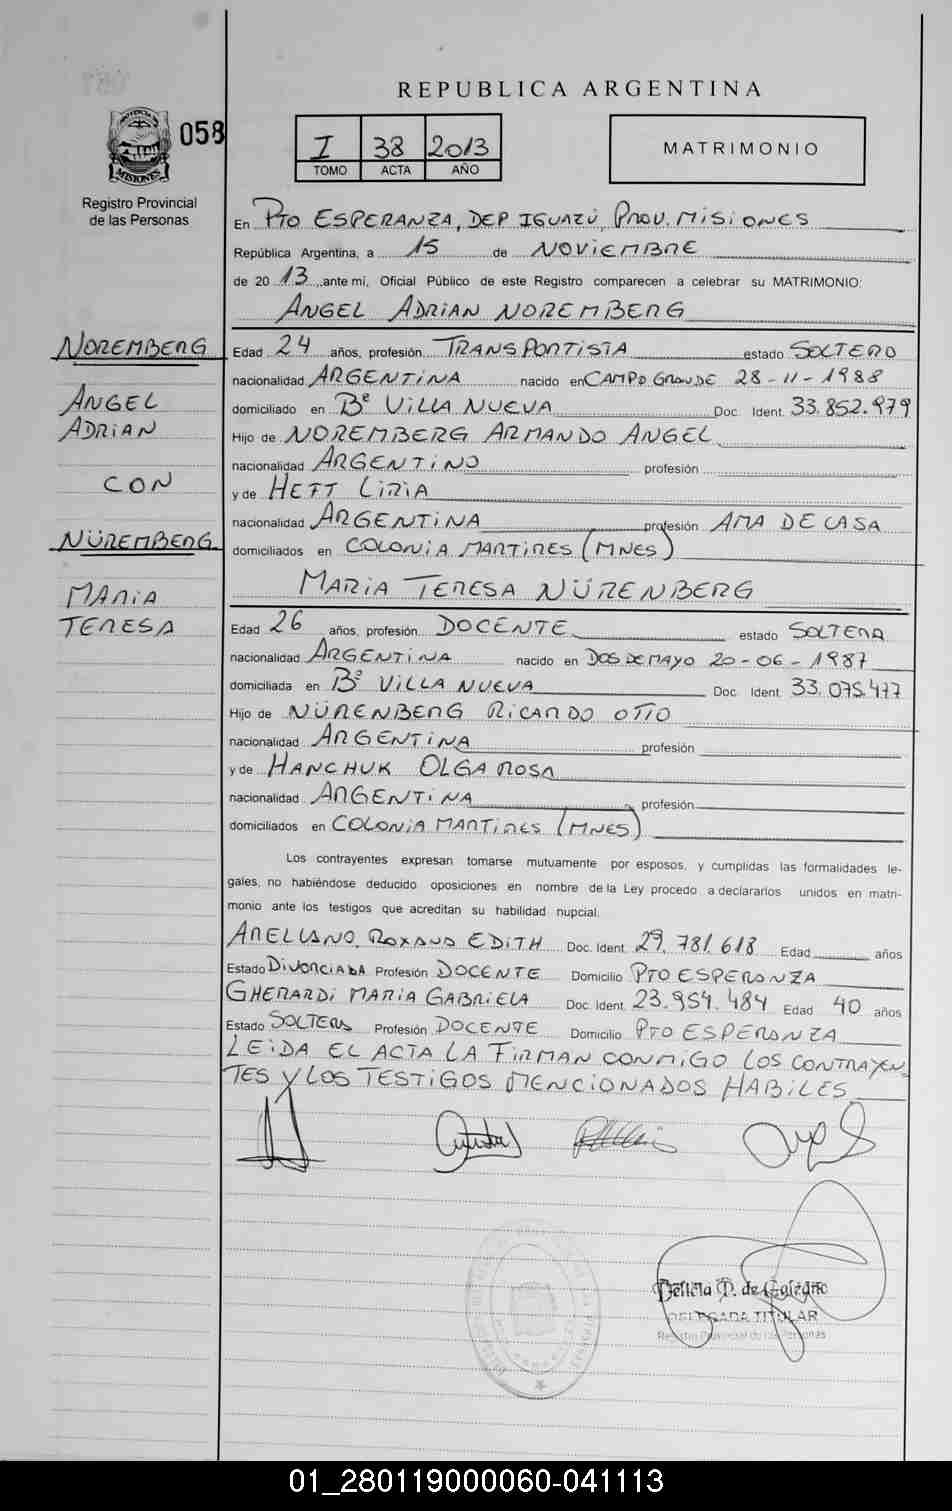 REPUBLICA ARGENTINA
PROVINCIA DE
MISIONES
058
Registro Provincial
de las Personas
I 38 2013
TOMO ACTA AÑO
MATRIMONIO
En PTO ESPERANZA, DEP IGUAZÚ, PROV. MISIONES
República Argentina, a 15 de NOVIEMBRE
de 20 13, ante mi, Oficial Público de este Registro comparecen a celebrar su MATRIMONIO:
ANGEL ADRIAN NOREMBERG
NOREMBERG
ANGEL
ADRIAN
CON
NÜREMBERG
MARIA
TERESA
Edad 24 años, profesión TRANSPORTISTA estado SOLTERO
nacionalidad ARGENTINA nacido en CAMPO GRANDE 28-11-1988
domiciliado en Bº VILLA NUEVA Doc. Ident. 33.852.979
Hijo de NOREMBERG ARMANDO ANGEL
nacionalidad ARGENTINO profesión
y de HETT LIRIA
nacionalidad ARGENTINA profesión AMA DE CASA
domiciliados en COLONIA MARTIRES (MNES)
MARIA TERESA NÜRENBERG
Edad 26 años, profesión DOCENTE estado SOLTERA
nacionalidad ARGENTINA nacido en DOS DE MAYO 20-06-1987
domiciliada en Bº VILLA NUEVA Doc. Ident. 33.075.477
Hijo de NÜRENBERG RICARDO OTTO
nacionalidad ARGENTINA profesión
y de HANCHUK OLGA ROSA
nacionalidad ARGENTINA profesión
domiciliados en COLONIA MARTIRES (MNES)
Los contrayentes expresan tomarse mutuamente por esposos, y cumplidas las formalidades le-
gales, no habiéndose deducido oposiciones en nombre de la Ley procedo a declararlos unidos en matri-
monio ante los testigos que acreditan su habilidad nupcial.
ARELLANO, ROXANA EDITH Doc. Ident. 29.781.618 Edad años
Estado DIVORCIADA Profesión DOCENTE Domicilio PTO ESPERANZA
GHERARDI MARIA GABRIELA Doc. Ident. 23.954.484 Edad 40 años
Estado SOLTERA Profesión DOCENTE Domicilio PTO ESPERANZA
LEIDA EL ACTA LA FIRMAN CONMIGO LOS CONTRAYEN-
TES Y LOS TESTIGOS MENCIONADOS HABILES
DELEGADA TITULAR
Registro Provincial de las Personas
01_280119000060-041113